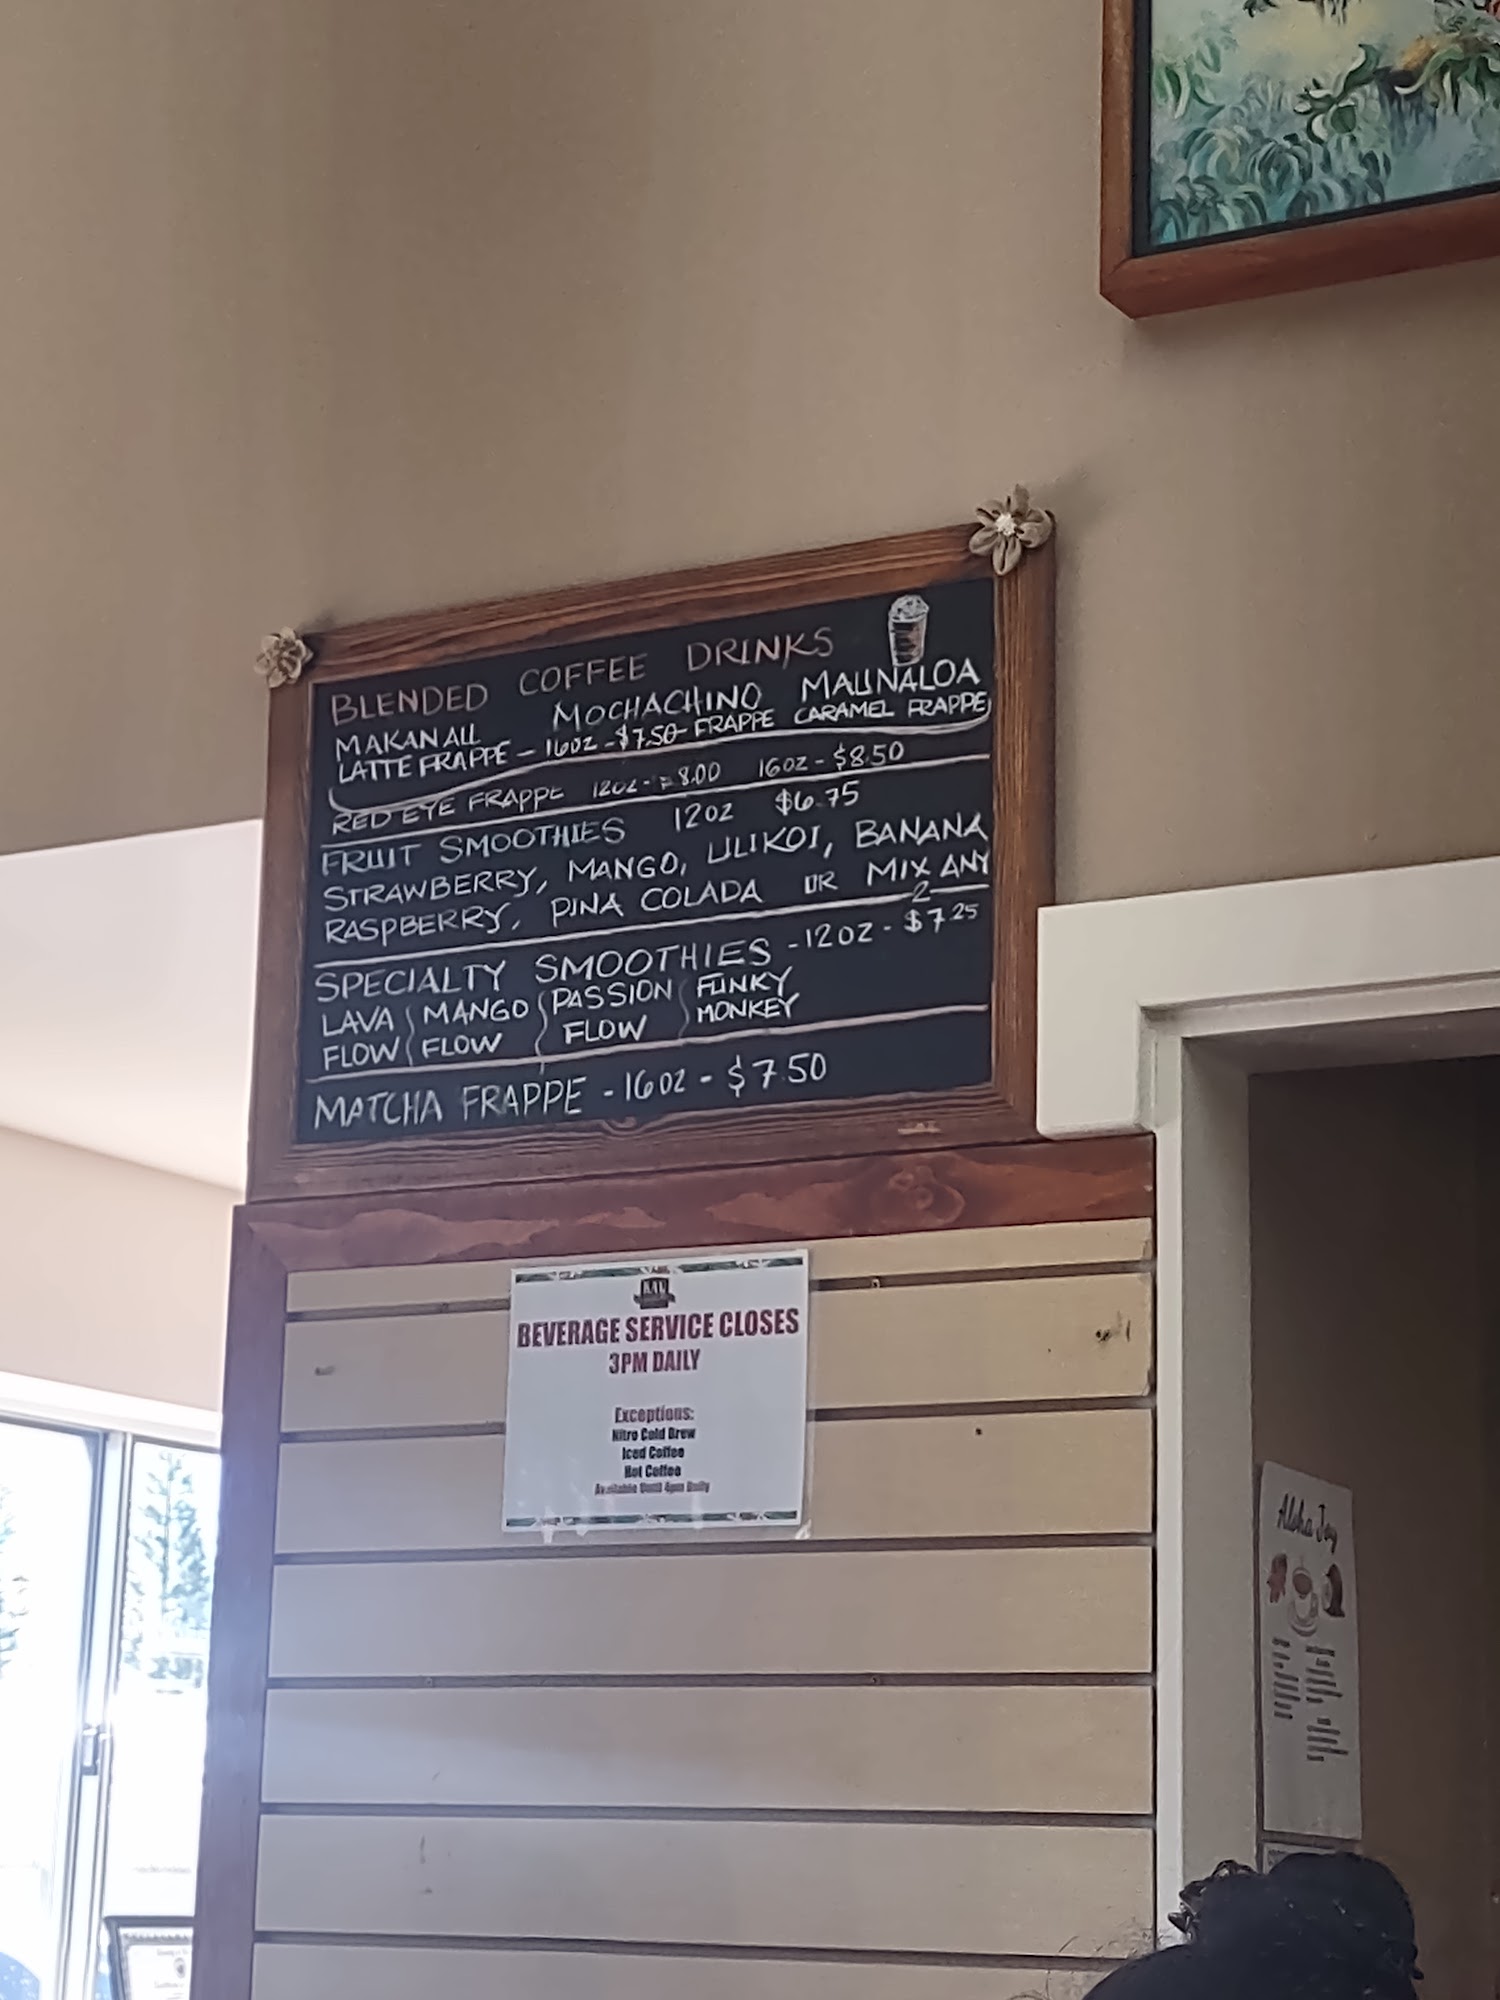 BLENDED COFFEE DRINKS
MAKANALL MOCHACHINO MAUNALOA
LATTE FRAPPE - 16OZ - $7.50 FRAPPE CARAMEL FRAPPE
RED EYE FRAPPE 12OZ - $8.00 16OZ - $8.50
FRUIT SMOOTHIES 12OZ $6.75
STRAWBERRY, MANGO, LILIKOI, BANANA
RASPBERRY, PINA COLADA OR MIX ANY
2
SPECIALTY SMOOTHIES - 12OZ - $7.25
LAVA MANGO PASSION FUNKY
FLOW FLOW FLOW MONKEY
MATCHA FRAPPE - 16OZ - $7.50
BEVERAGE SERVICE CLOSES
3PM DAILY
Exceptions:
Nitro Cold Brew
Iced Coffee
Hot Coffee
Available Until 4pm Daily
Aloha Joy